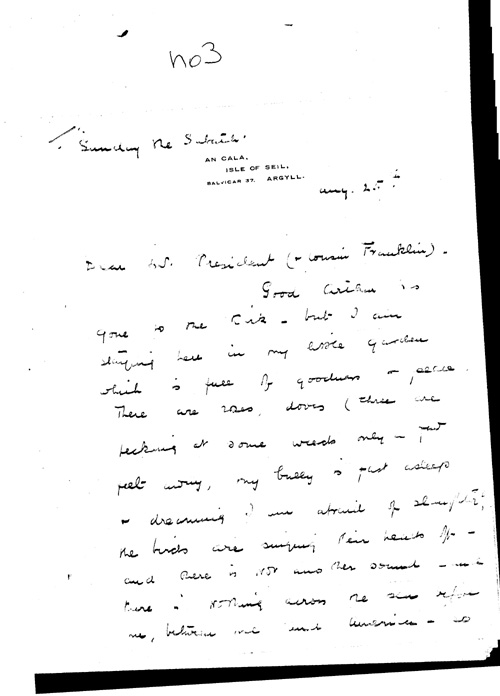 no3
"Sunday the Sabath.
AN CALA,
ISLE OF SEIL,
BALVICAR 37. ARGYLL.
Aug. 25th
Dear Mr. President (& cousin Franklin) -
Good Arthur is
gone to the Kirk - but I am
staying here in my little garden
which is full of goodness & peace.
There are roses, doves (three are
pecking at some weeds only - just
 away, my bully is fast asleep
& dreaming I am afraid of slaughter,
the birds are singing their heads off -
and there is not another sound - and
there is nothing across the sea before
me, between me and America - so